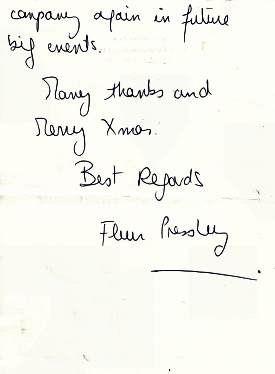 company again in future
big events.
Many thanks and
Merry Xmas.
Best Regards